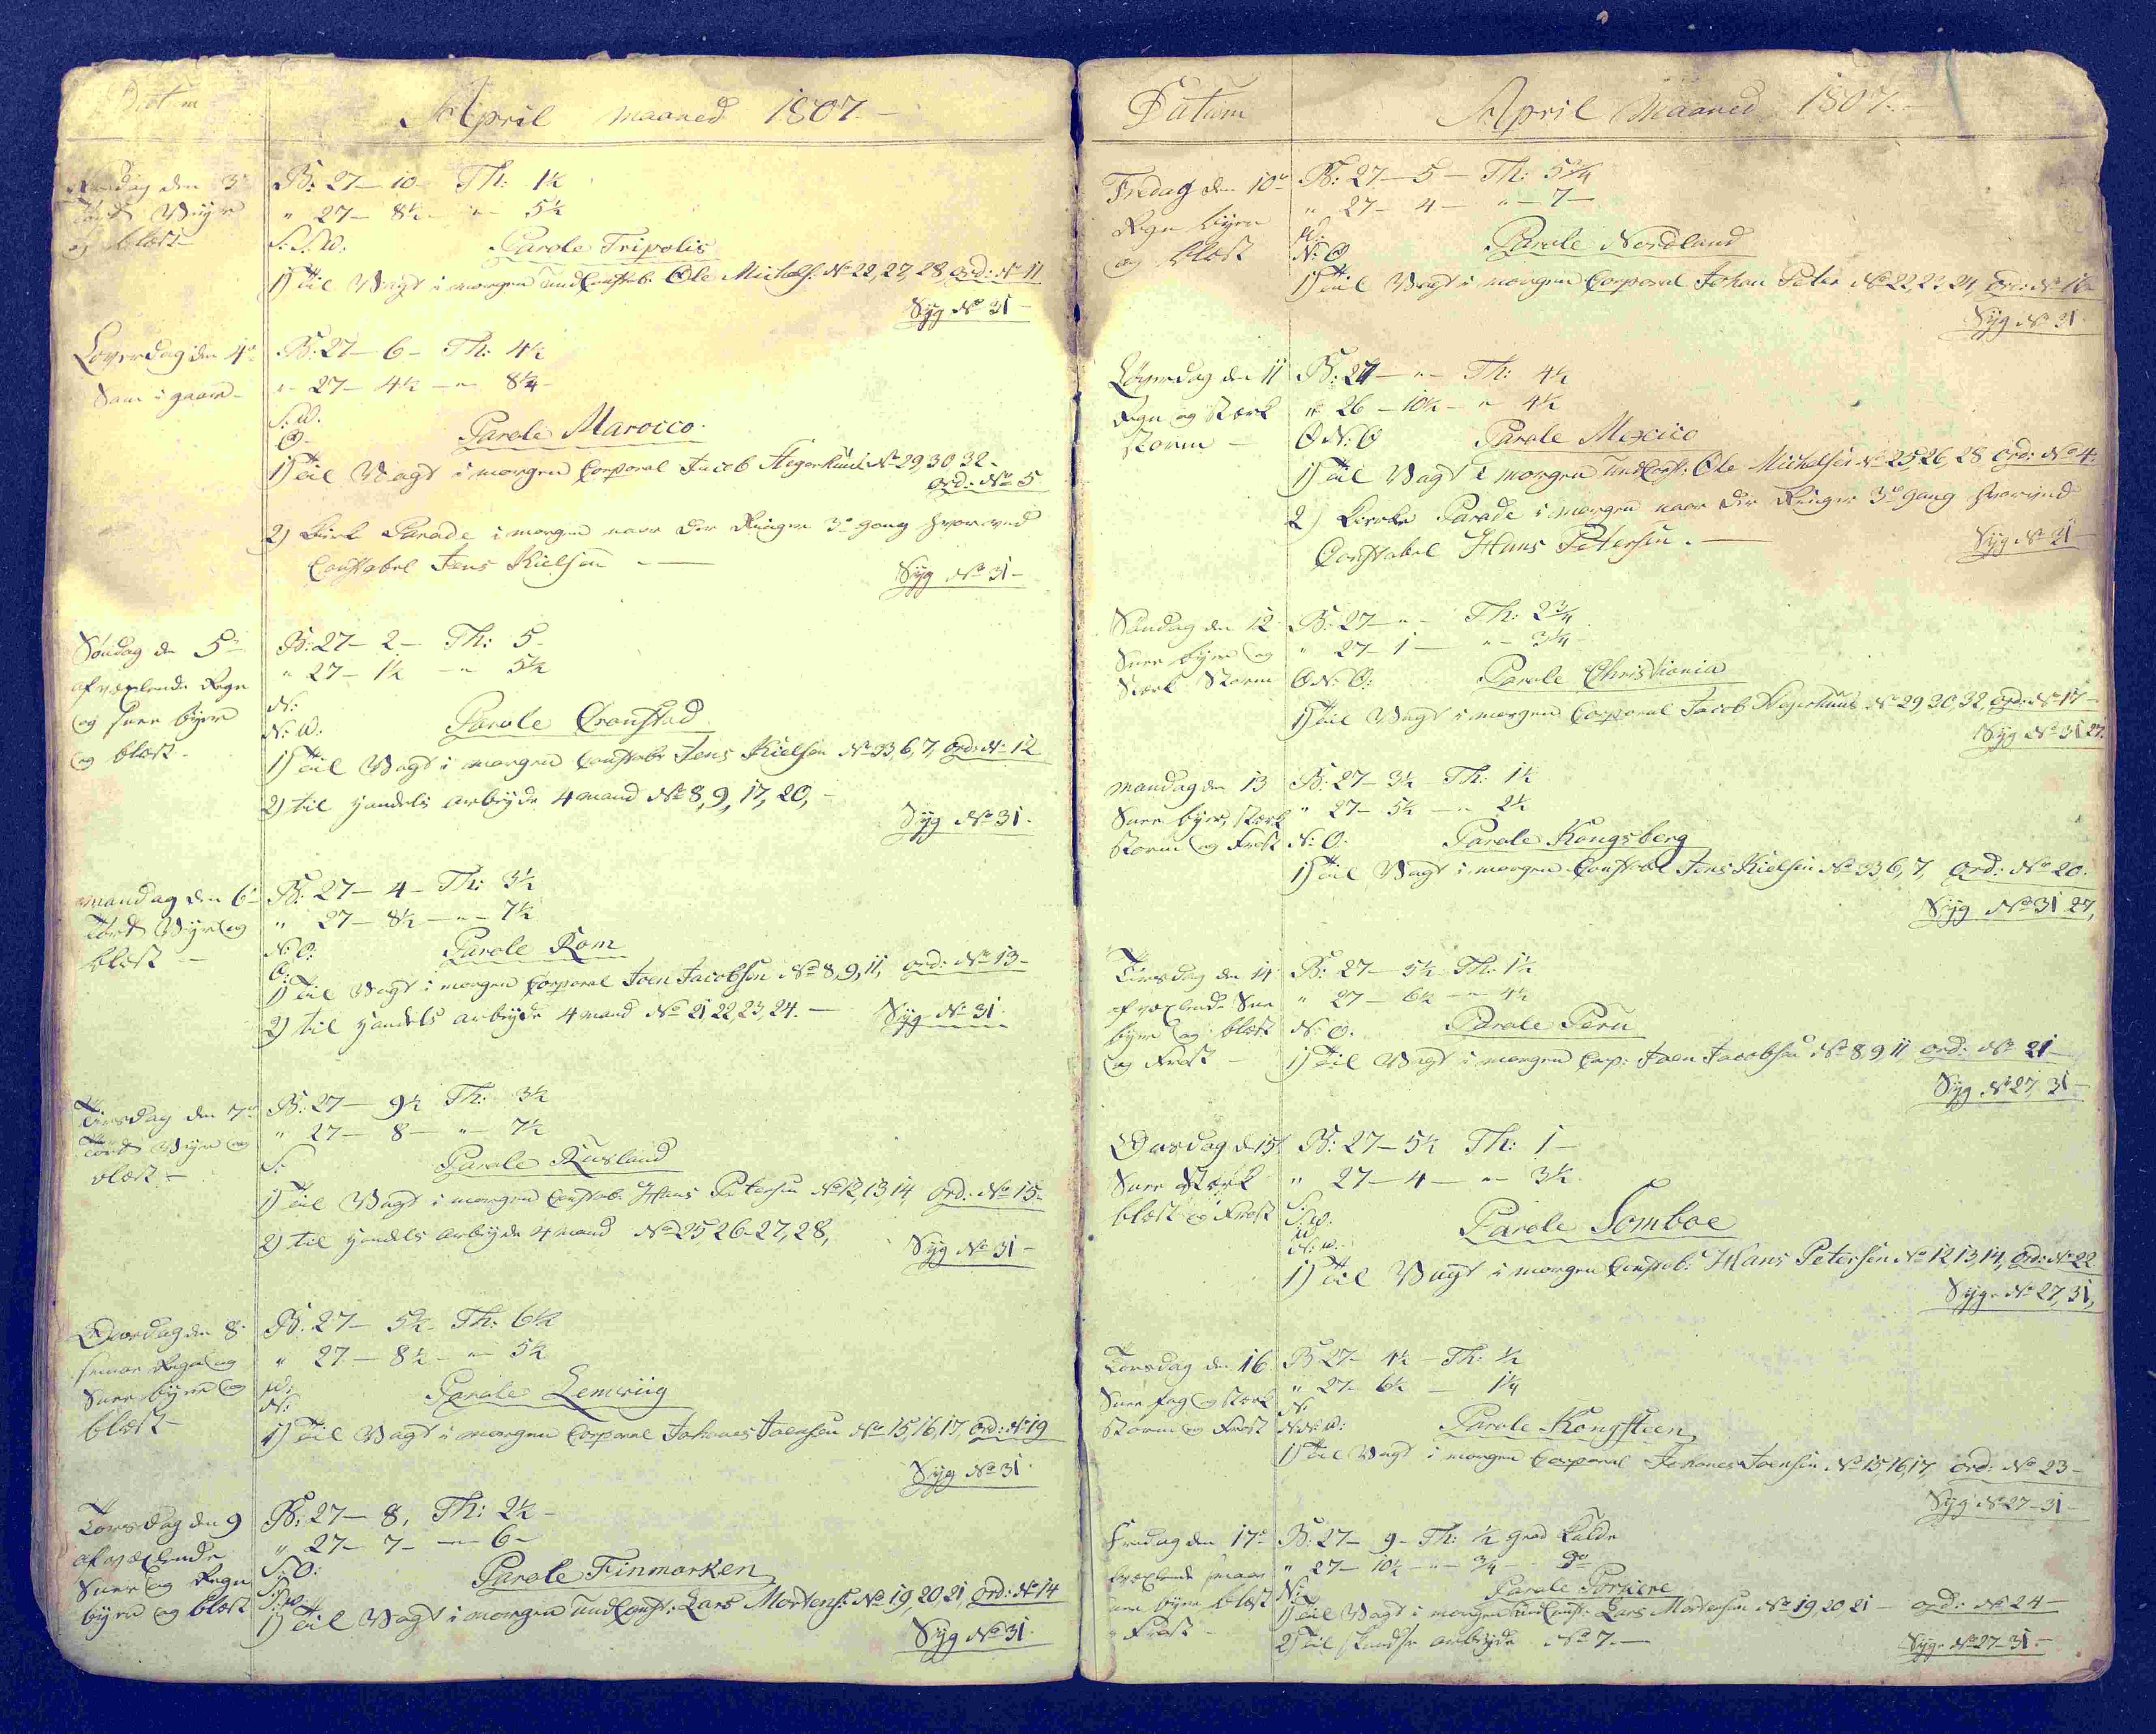 Datum
April Maaned 1807.
Fredag den 3e
Tørt Veyr
og blæst
B: 27 - 10 - Th: 1½
" 27 - 8½ - " - 5½
S:S:W:
Parole Tripolis
1) Til Vagt i morgen Und Constab: Ole Michels: No 22, 27, 28, Ord: No 11
Syg No 31 -
Løverdag den 4e
Som i gaar -
B: 27 - 6 - Th: 4½
" - 27 - 4½ - " - 8¼ -
S:W.
O.
Parole Marocco.
1) Til Vagt i morgen Corporal Jacob Hegerhuus No 29, 30 32 -
Ord: No 5
2) Kirke Parade i morgen naar der Ringer 3de gang hvorved
Constabel Jens Kielsen - —
Syg No 31 -
Søndag de 5te
afvexlende Regn
og snee byer
og blæst -
B: 27 - 2 - Th: 5 -
" 27 - 1½ - " 5½
N:
N:W.
Parole Cronstad
1) Til Vagt i morgen Constab: Jens Kielsen No 33, 6, 7, Ord: No 12
2) til handels arbeyde 4 mand No 8, 9, 17, 20, -
Syg No 31 -
Mandag den 6te
Tørt Veyr og
blæst -
B: 27 - 4 - Th: 3½
" 27 - 8½ - " - 7½
N:O:
O:
Parole Rom
1) Til Vagt i morgen Corporal Joen Jacobsen No 8, 9, 11, Ord: No 13 -
2) til handels arbeyde 4 mand No 21 22, 23, 24. -
Syg No 31 -
Tirsdag den 7de
Tørt Veyr og
blæst -
B: 27 - 9½ Th: 3½
" 27 - 8 - " - 7½
S:
Parole Rusland
1) Til Vagt i morgen Constab: Hans Petersen No 12, 13 14, Ord: No 15 -
2) til handels arbeyde 4 mand No 25 26 - 27, 28,
Syg No 31 -
Onsdag den 8
smaae Regn og
Snee byer og
blæst -
B: 27 - 5½ - Th: 6½
" 27 - 8½ - " - 5½
W:
N:
Parole Lemviig
1) Til Vagt i morgen Corporal Johanes Joensen No 15, 16, 17, Ord: No 19
Syg No 31 -
Torsdag den 9
afvexlende
Snee og Regn
byer og blæst
B: 27 - 8, Th: 2½ -
" 27 - 7 - " - 6 -
S:O:
S:W:
Parole Finmarken
1) Til Vagt i morgen Und Const: Lars Mortens: No 19, 20, 21, Ord: No 14
Syg No 31 -
Datum
April Maaned 1807.
Fredag den 10e
Regn byer
og blæst
B: 27 - 5 - Th: 5¼
" 27 - 4 - " - 7 -
W:
N:O
Parole Nordland
1) Til Vagt i morgen Corporal Johan Peter No 22, 23 24, Ord: No 16
Syg No 31 -
Løverdag den 11
Regn og stærk
storm -
B: 27 - " - Th: 4½
" 26 - 10½ - " 4½
O N:O
Parole Mexico
1) Til Vagt i morgen Und Const: Ole Michelsen No 25 26, 28 Ord: No 4.
2) Kirke Parade i morgen naar der Ringer 3de gang hvorved
Constabel Hans Petersen. —
Syg No 31 -
Søndag den 12
Snee byer og
Stærk Storm
B: 27 - " - Th: 2¾
" 27 - 1 - " - 3¼ -
O N:O:
Parole Christiania
1) Til Vagt i morgen Corporal Jacob Hegerhuus No 29, 30, 32, Ord: No 17 -
Syg No 31 27.
Mandag den 13
Snee byer, stærk
storm og Frost
B: 27 - 3½ - Th: 1½
" 27 - 5½ - " 2½
N:O.
Parole Kongsberg
1) Til Vagt i morgen Constabel Jens Kielsen No 33 6, 7, Ord: No 20.
Syg No 31 27,
Tirsdag den 14
afvexlende Snee
byer og blæst
og Frost -
B: 27 - 5½ - Th: 1½
" 27 - 6½ - " 4½
N:O.
Parole Peru
1) Til Vagt i morgen Corp: Joen Jacobsen No 8, 9 11 Ord: No 21 -
Syg No 27, 31 -
Onsdag d 15
Snee Stærk
blæst og Frost
B: 27 - 5½ Th: 1 -
" 27 - 4 - " - 3½.
S:W:
N:W:
Parole Somboe
1) Til Vagt i morgen Constab: Hans Petersen No 12, 13, 14, Ord: No 22
Syge No 27, 31,
Torsdag den 16
Snee fog og stærk
storm og Frost
B 27 - 4½ - Th: ½
" 27 - 6½ - 1¼
N:
N:N:W:
Parole Kongsteen
1) Til Vagt i morgen Corporal Johanes Joensen No 15 16, 17 Ord: No 23 -
Syg No 27 - 31 -
Fredag den 17de
snee byer blæst
Frost -
B: 27 - 9 - Th: ½ grad Kulde
" 27 - 10½ - " - ¾ - do
N:
1) Til Vagt i morgen Und Const: Lars Mortensen No 19, 20 21 - Ord: No 24 -
2) Til Skandse arbeyde No 7. -
Syge No 27 - 31 -